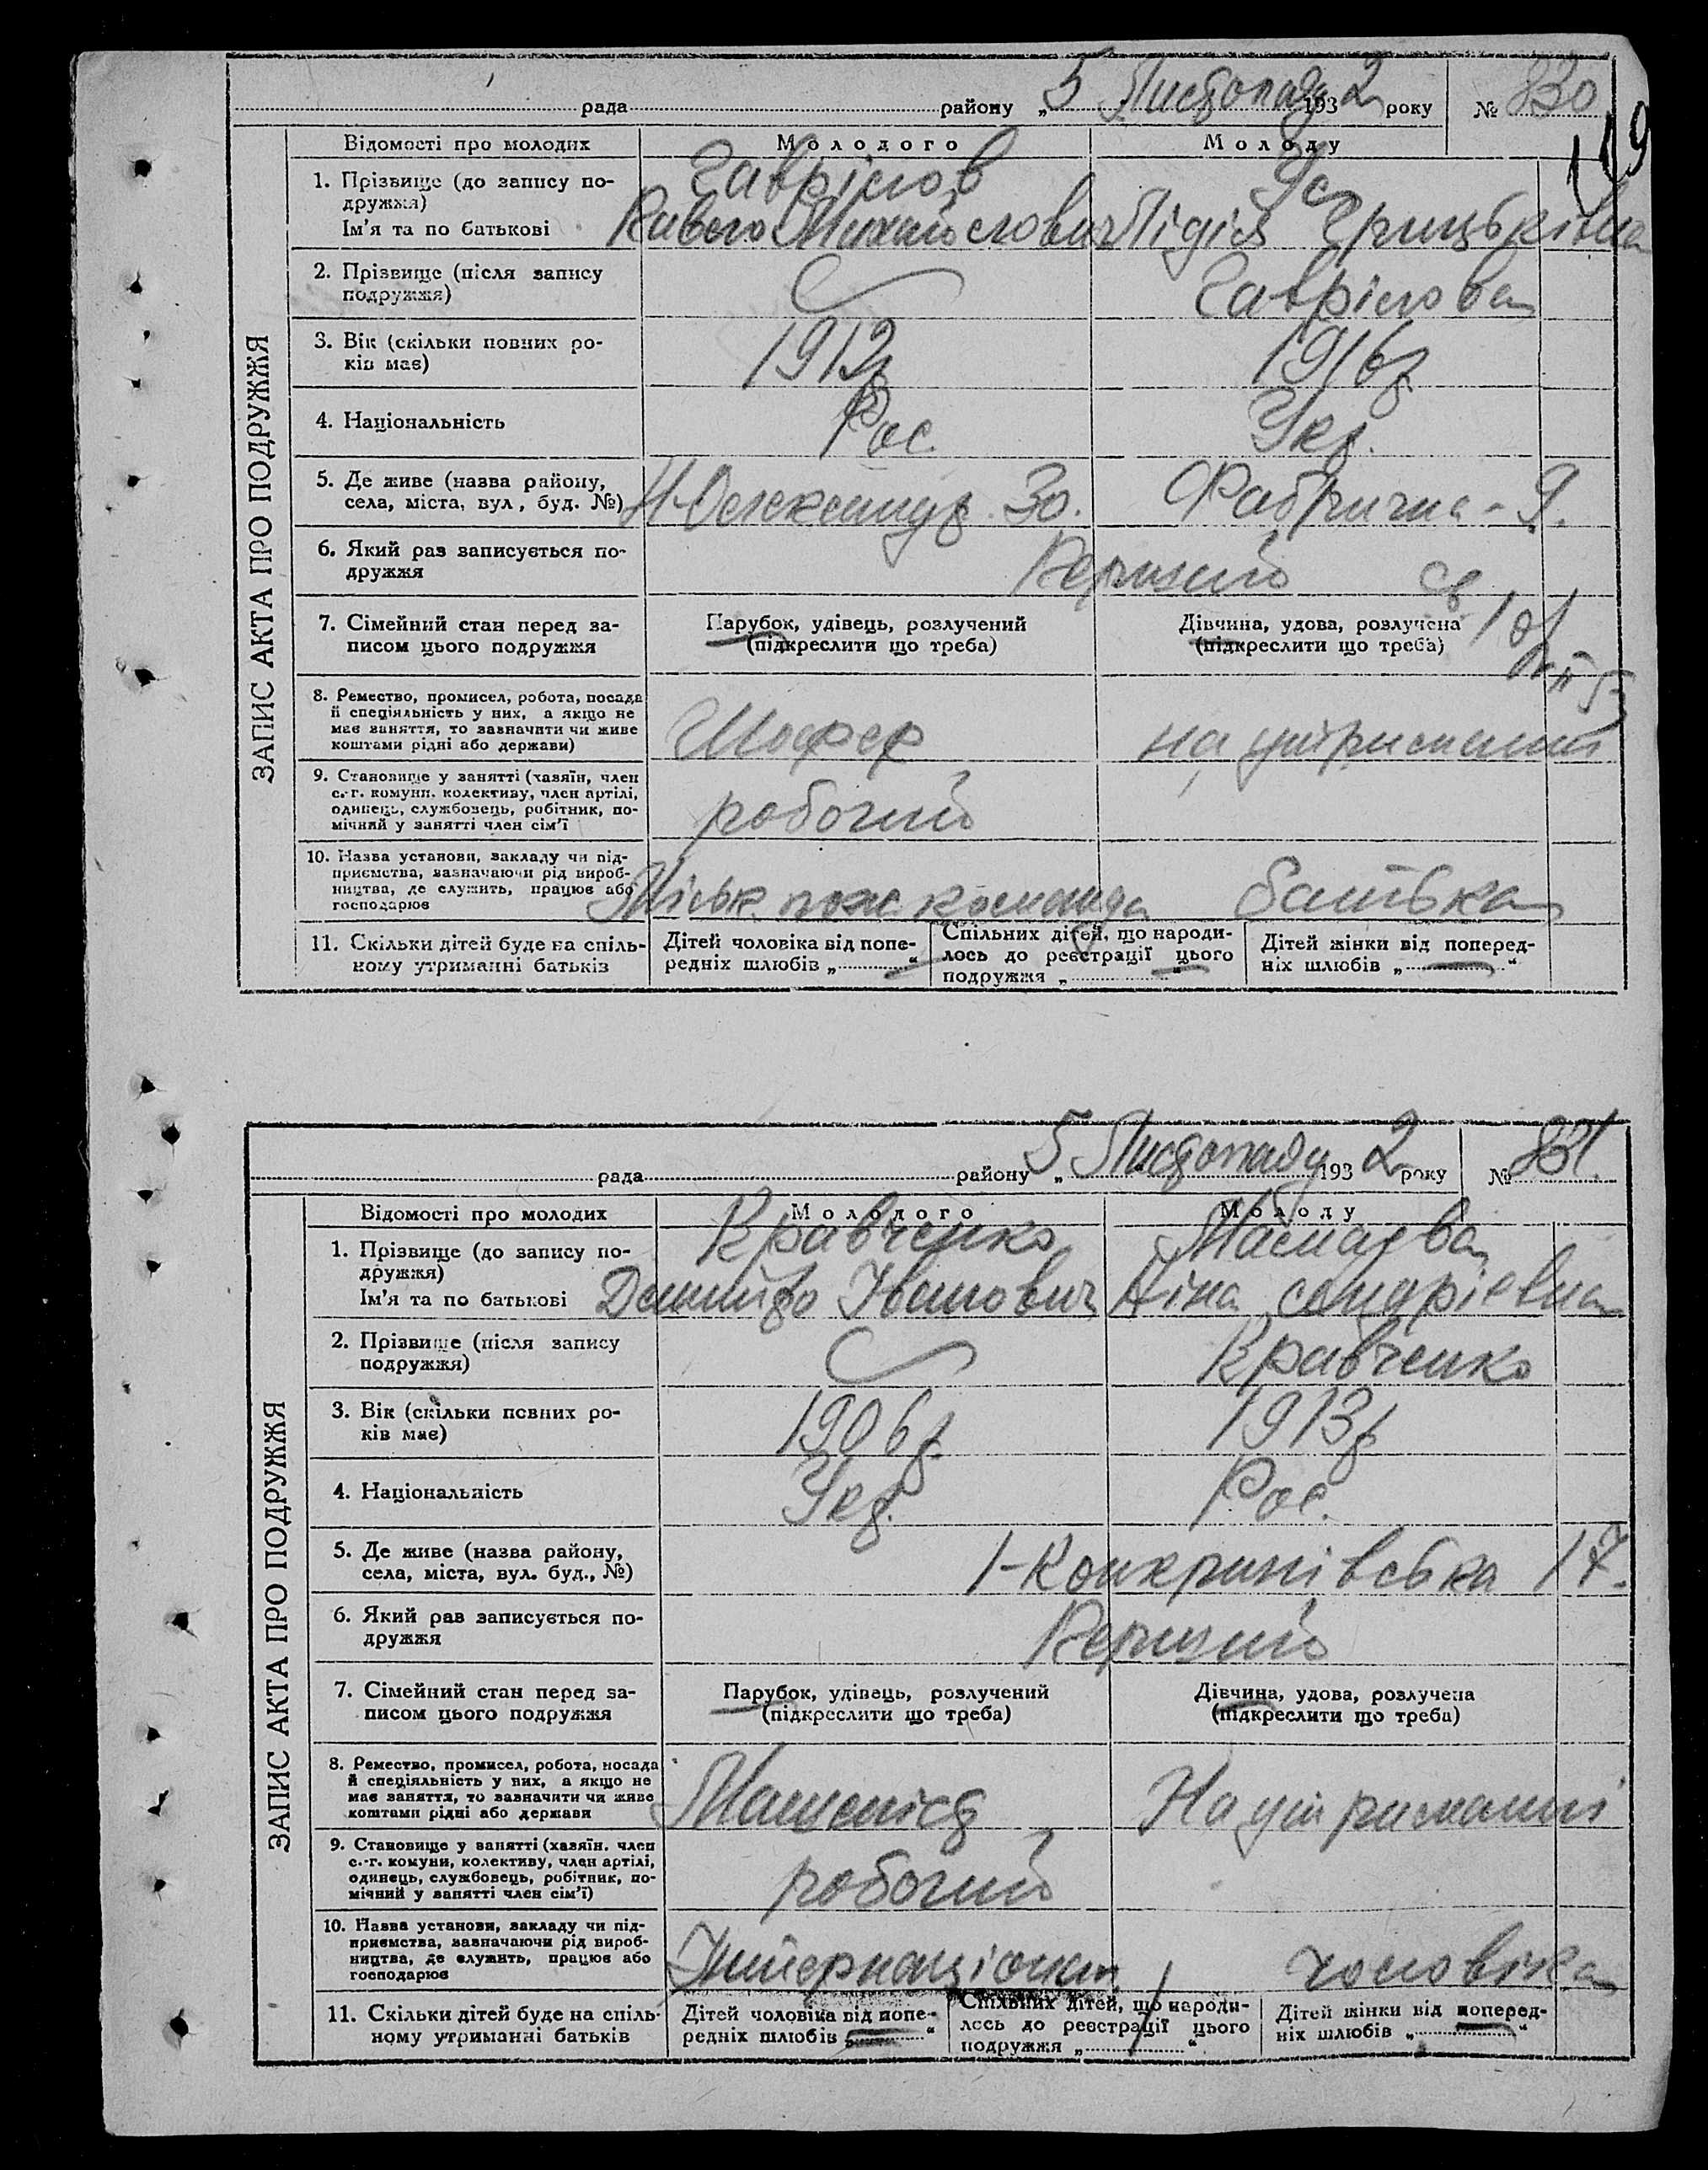 рада района „5 Листопада 1932 року № 830
119
Відомості про молодих Молодого Молоду
1. Прізвище (до запису по- Гаврілов Ус
дружжя)
Ім'я та по батькові Павло Михайлович Лідія Грицьківна
2. Прізвище (після запису Гаврілова
подружжя)
3. Вік (скільки повних ро- 1912р 1916р
ків має)
4. Національність Рос. Укр.
5. Де живе (назва району, Фабрична - 9.
села, міста, вул, буд. №) 30.
6. Який раз записується по- Перший св
дружжя
7. Сімейний стан перед за- Парубок, удівець, розлучений Дівчина, удова, розлучена
писом цього подружжя (підкреслити що треба) (підкреслити що треба)
8. Ремество, промисел, робота, посада Шофер на утриманні
й спеціяльність у них, а якщо не
має заняття, то зазначити чи живе
коштами рідні або держави)
9. Становище у занятті (хазяїн, член робочий
с.-г. комуни, колективу, член артілі,
одинець, службовець, робітник, по-
мічний у занятті член сім'ї
10. Назва установи, закладу чи під- Міськ. пож. команда батька
приємства, зазначаючи рід вироб-
ництва, де служить, працює або
господарює
11. Скільки дітей буде на спіль- Дітей чоловіка від попе- Спільних дітей, що народи- Дітей жінки від поперед-
ному утриманні батьків редніх шлюбів „ “ лось до реєстрації цього ніх шлюбів „ — “
подружжя „ “
ЗАПИС АКТА ПРО ПОДРУЖЖЯ
рада району „5 Листопаду 1932 року № 831.
Відомості про молодих Молодого Молоду
1. Прізвище (до запису по- Кравченко
дружжя)
Ім'я та по батькові Дмитро Іванович Ніна
2. Прізвище (після запису Кравченко
подружжя)
3. Вік (скільки повних ро- 1906р. 1913р
ків має)
4. Національність Укр. Рос.
5. Де живе (назва району, 17.
села, міста, вул. буд., №)
6. Який раз записується по- Перший
дружжя
7. Сімейний стан перед за- Парубок, удівець, розлучений Дівчина, удова, розлучена
писом цього подружжя (підкреслити що треба) (підкреслити що треба)
8. Ремество, промисел, робота, посада Машеніст На утриманні
й спеціяльність у них, а якщо не
має заняття, то зазначити чи живе
коштами рідні або держави
9. Становище у занятті (хазяїн, член робочий
с.-г. комуни, колективу, член артілі,
одинець, службовець, робітник, по-
мічний у занятті член сім'ї)
10. Назва установи, закладу чи під- Інтернаціонал чоловіка
приємства, зазначаючи рід вироб-
ництва, де служить, працює або
господарює
11. Скільки дітей буде на спіль- Дітей чоловіка від попе- Спільних дітей, що народи- Дітей жінки від поперед-
ному утриманні батьків редніх шлюбів „ — “ лось до реєстрації цього ніх шлюбів „ — “
подружжя „ “
ЗАПИС АКТА ПРО ПОДРУЖЖЯ